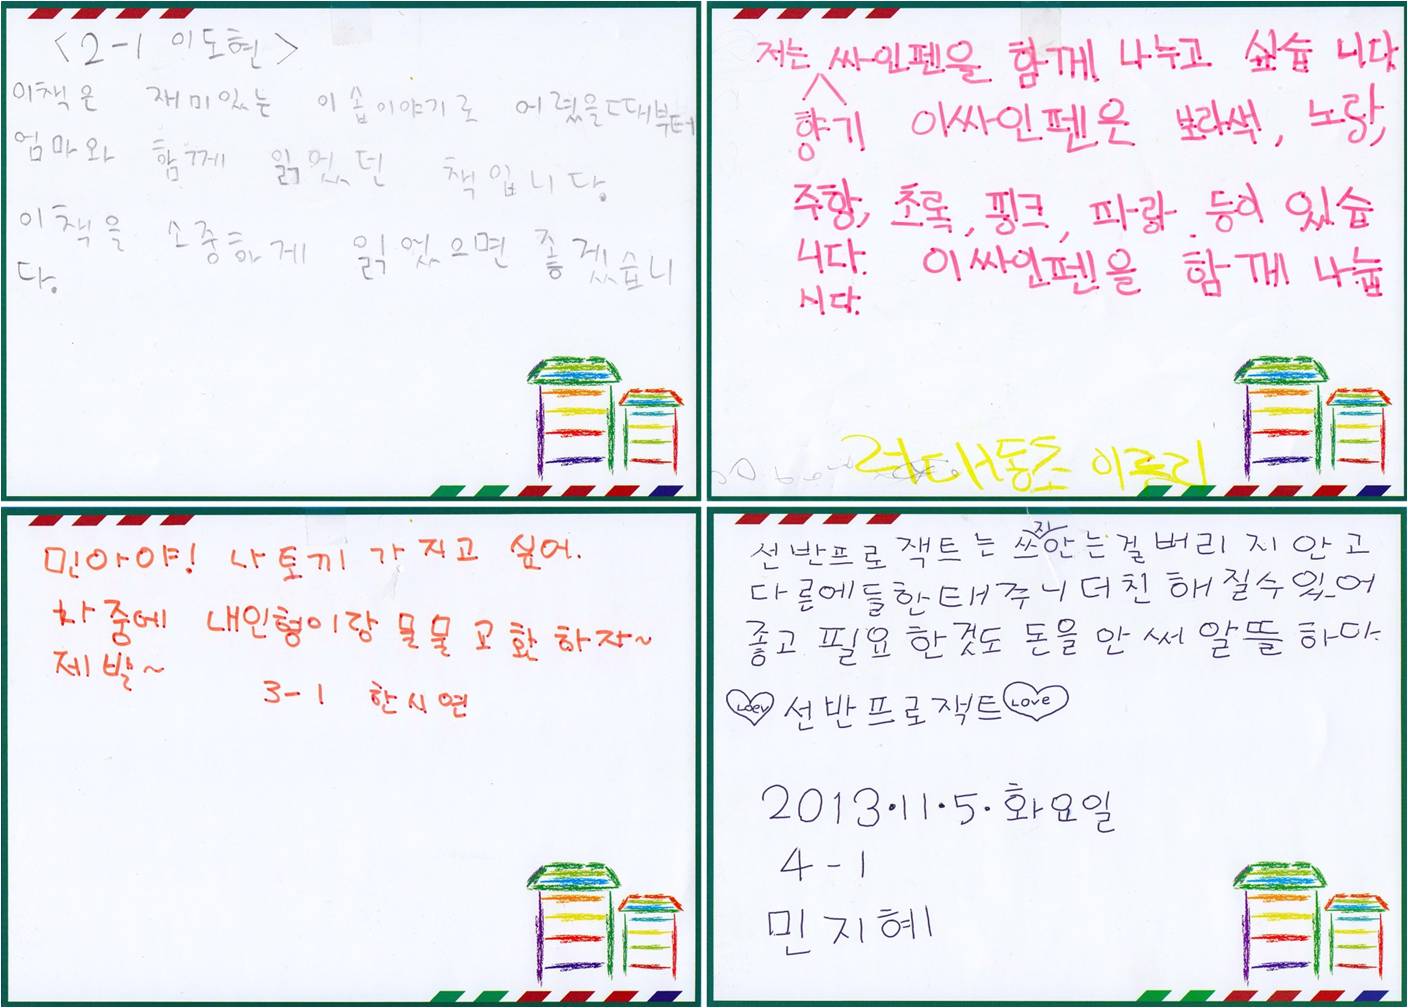 <2-1 이도현>
이책은 재미있는 이솝이야기로 어렸을때부터
엄마와 함께 읽었던 책입니다.
이책을 소중하게 읽었으면 좋겠습니
다.
저는 싸인펜을 함께 나누고 싶습니다
향기 이싸인펜은 보라색, 노랑,
주황, 초록, 핑크, 파랑, 등이 있습
니다. 이싸인펜을 함께 나눕
시다.
민아야! 나 토끼 가지고 싶어.
나중에 내인형이랑 물물교환하자~
제발~
3-1 한시연
선반프로잭트는 쓰잖안는걸 버리지안고
다른에들한태주니 더친해질수있어
좋고 필요한것도 돈을 안써 알뜰하다.
Loev 선반프로잭트 Love
2013.11.5.화요일
4-1
민지혜